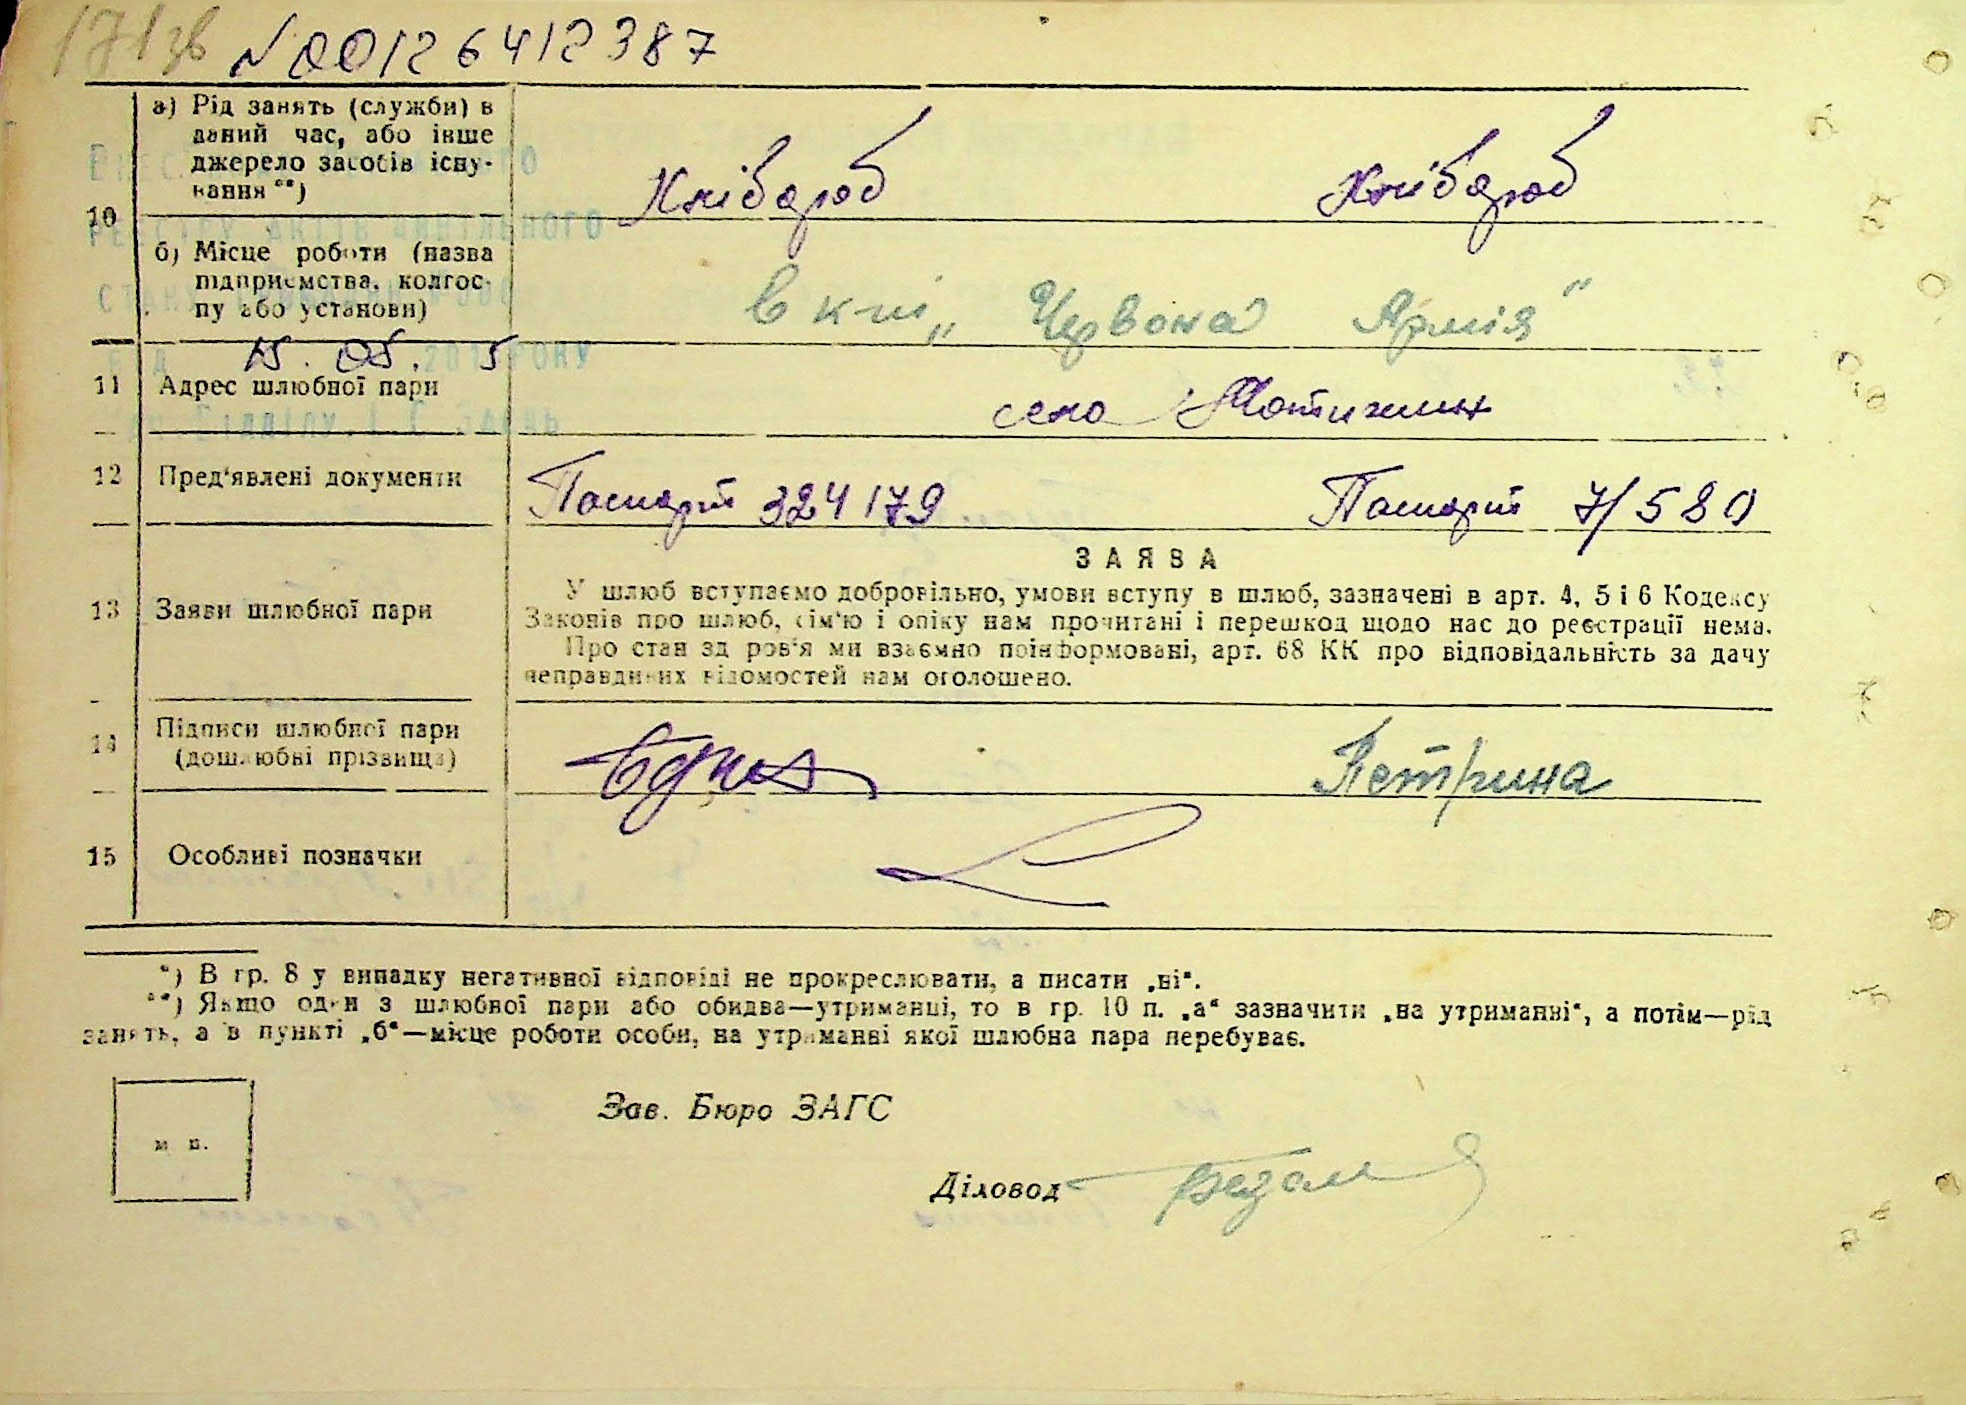 171зв N 00126412387
10
а) Рід занять (служби) в
даний час, або інше
джерело засобів існу-
вання **)
Хлібороб Хлібороб
б) Місце роботи (назва
підприємства, колгос-
пу або установи)
В к-пі „Червона Армія"
РЕЄСТРУ АКТІВ ЦИВІЛЬНОГО
15. 05. 2015 РОКУ
11 Адрес шлюбної пари
село Мотижин
12 Пред'явлені документи
Паспорт 324179 Паспорт 7/580
13 Заяви шлюбної пари
ЗАЯВА
У шлюб вступаємо добровільно, умови вступу в шлюб, зазначені в арт. 4, 5 і 6 Кодексу
Законів про шлюб, сім'ю і опіку нам прочитані і перешкод щодо нас до реєстрації нема.
Про стан здоров'я ми взаємно поінформовані, арт. 68 КК про відповідальність за дачу
неправдивих відомостей нам оголошено.
14 Підписи шлюбної пари
(дошлюбні прізвища)
Петрина
15 Особливі позначки
*) В гр. 8 у випадку негативної відповіді не прокреслювати, а писати „ні".
**) Якщо один з шлюбної пари або обидва—утриманці, то в гр. 10 п. „а" зазначити „на утриманні", а потім—рід
занять, а в пункті „б"—місце роботи особи, на утриманні якої шлюбна пара перебуває.
Зав. Бюро ЗАГС
м п.
Діловод